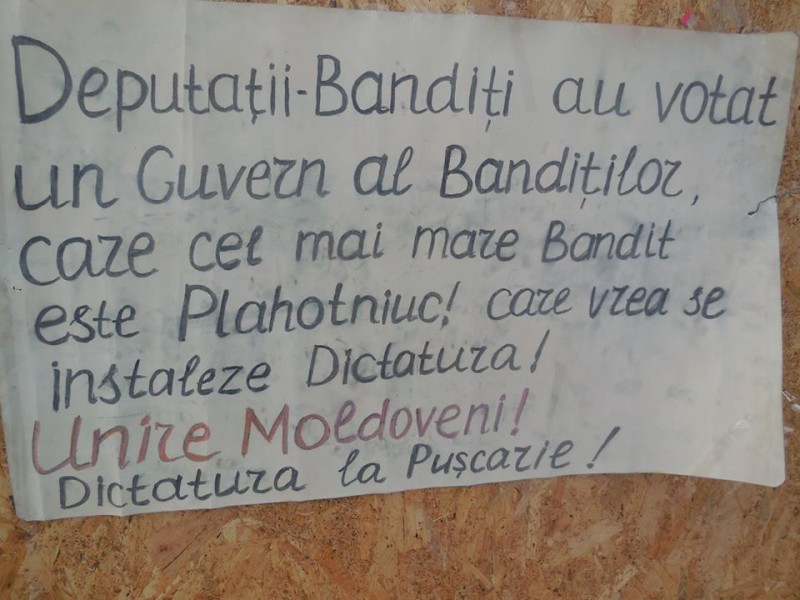 Deputații-Bandiți au votat
un Guvern al Bandiților,
care cel mai mare Bandit
este Plahotniuc! care vrea se
instaleze Dictatura!
Unire Moldoveni!
Dictatura la Pușcarie!